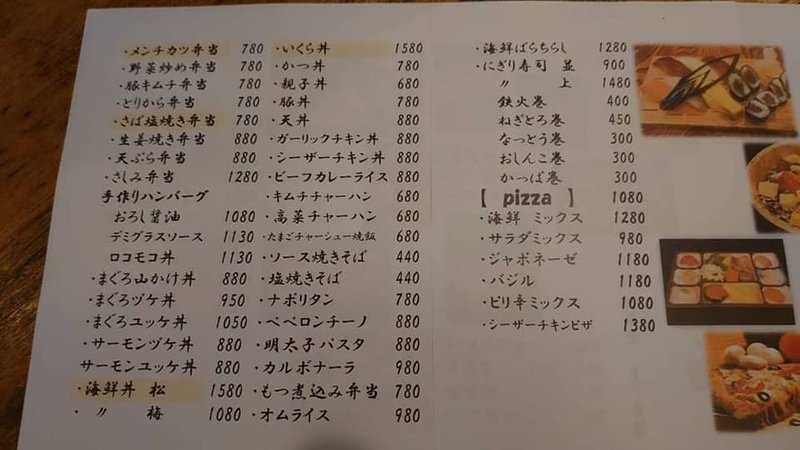 ・メンチカツ弁当 780
・野菜炒め弁当 780
・豚キムチ弁当 780
・とりから弁当 780
・さば塩焼き弁当 780
・生姜焼き弁当 880
・天ぷら弁当 880
・さしみ弁当 1280
手作りハンバーグ
おろし醤油 1080
デミグラスソース 1130
ロコモコ丼 1130
・まぐろ山かけ丼 880
・まぐろヅケ丼 950
・まぐろユッケ丼 1050
・サーモンヅケ丼 880
サーモンユッケ丼 880
・海鮮丼 松 1580
・ 〃 梅 1080
・いくら丼 1580
・かつ丼 780
・親子丼 680
・豚丼 780
・天丼 880
・ガーリックチキン丼 880
・シーザーチキン丼 880
・ビーフカレーライス 880
・キムチチャーハン 680
・高菜チャーハン 680
・たまごチャーシュー焼飯 680
・ソース焼きそば 440
・塩焼きそば 440
・ナポリタン 780
・ペペロンチーノ 880
・明太子パスタ 880
・カルボナーラ 980
・もつ煮込み弁当 780
・オムライス 980
・海鮮ばらちらし 1280
・にぎり寿司 並 900
〃 上 1480
鉄火巻 400
ねぎとろ巻 450
なっとう巻 300
おしんこ巻 300
かっぱ巻 300
【 pizza 】 1080
・海鮮 ミックス 1280
・サラダミックス 980
・ジャポネーゼ 1180
・バジル 1180
・ピリ辛ミックス 1080
・シーザーチキンピザ 1380